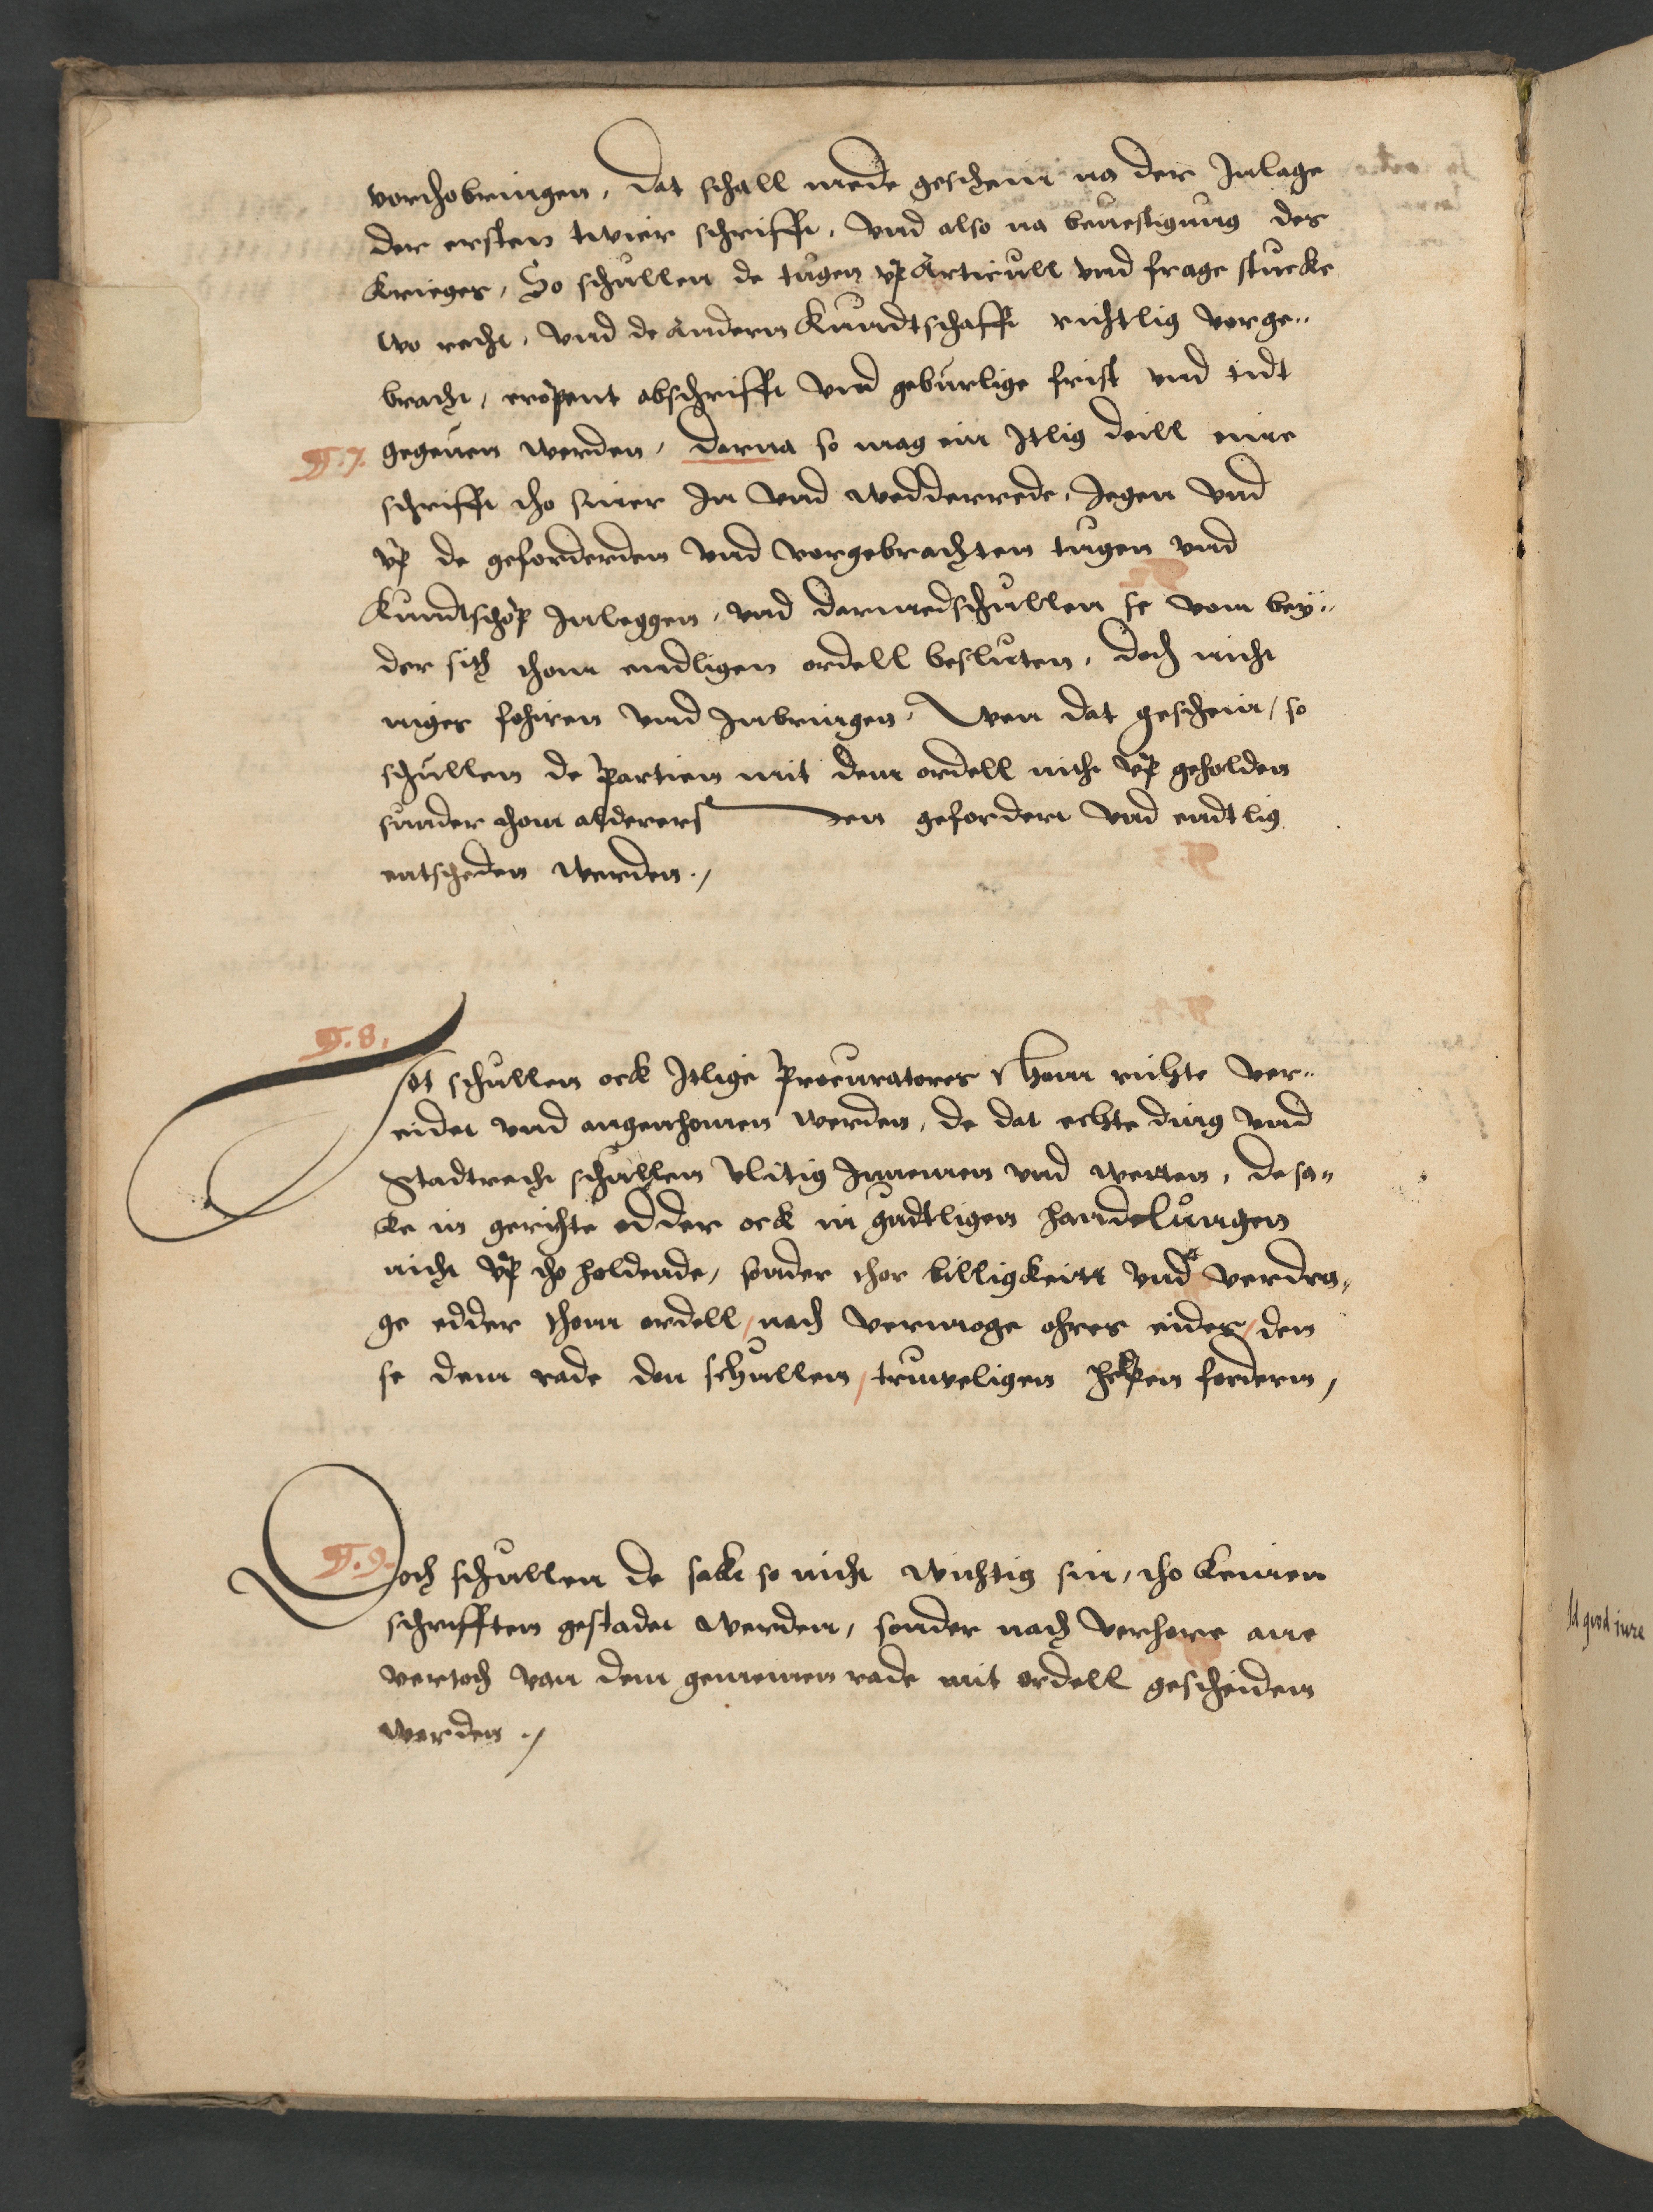 vorthobringen, dat schall mede geschein na der Inlage
der ersten twier schrifft, vnd also na beuestigung des
krieges, So schullen de tugen vp Articull vnd frage stucke
wo recht, vnd de andern Kundtschafft richtlig vorge„
bracht, eropent abschrifft vnd geburlige frist vnd tidt
§.7. gegeuen werden, darna so mag ein Itlig deill eine
schrifft tho siner In vnd wedderrede, Jegen vnd
vp de geforderden vnd vorgebrachten tugen vnd
Kundtschop Inleggen, vnd darmed schullen se vom bey„
der sith thom endligen ordell besluten, doch nicht
niges fohiren vnd Inbringen, Wen dat geschein, so
schullen de partien mit dem ordell nicht vp geholden
sunder thom alderers den gefordert vnd endtlig
entscheden werden./
§.8.
Idt schullen ock Itlige Procuratores thom richte ver„
eidet vnd angenhomen werden, de dat echte ding vnd
Stadtrecht schullen vlitig Innemen vnd weten, de sa„
ke in gerichte edder ock in gudtligen handelungen
nicht vp tho holdende, sonder thor billigkeitt vnd verdra„
ge edder thom ordell, nach vermoge ohres eides, den
se dem rade don schullen, truweligen helpen fordern,
§.9.
Doch schullen de sake so nicht wichtig sin, tho keinen
schrifften gestadet werden, sonder nach verhore ane
vertoch van dem gemeinen rade mit ordell gescheiden
werden./
Id quod iure